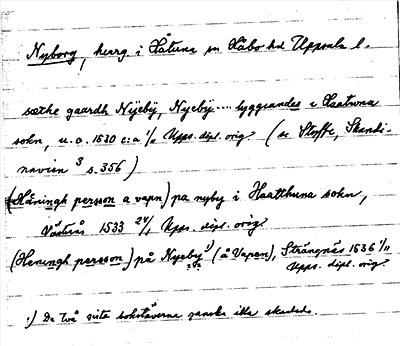 Nyborg, herrg. i Håtuna sn Håbo hd Uppsala l.
sæthe gaardh Nyeby, Nyeby .... lyggiandes i Haatwna
sokn, u.o. 1530 c:a 1/11 Upps. dipl. orig. (se Styffe, Skandi-
navien 3 s. 356)
(Häningh persson a vapn) pa nyby i Haatthuna sokn,
Västerås 1533 24/1 Upps. dipl. orig.
(Heningh persson) på Nyeby 1) (å Vapen), Strängnäs 1536 1/11
Upps. dipl. orig.
1) De två sista bokstäverna ganska illa skadade.